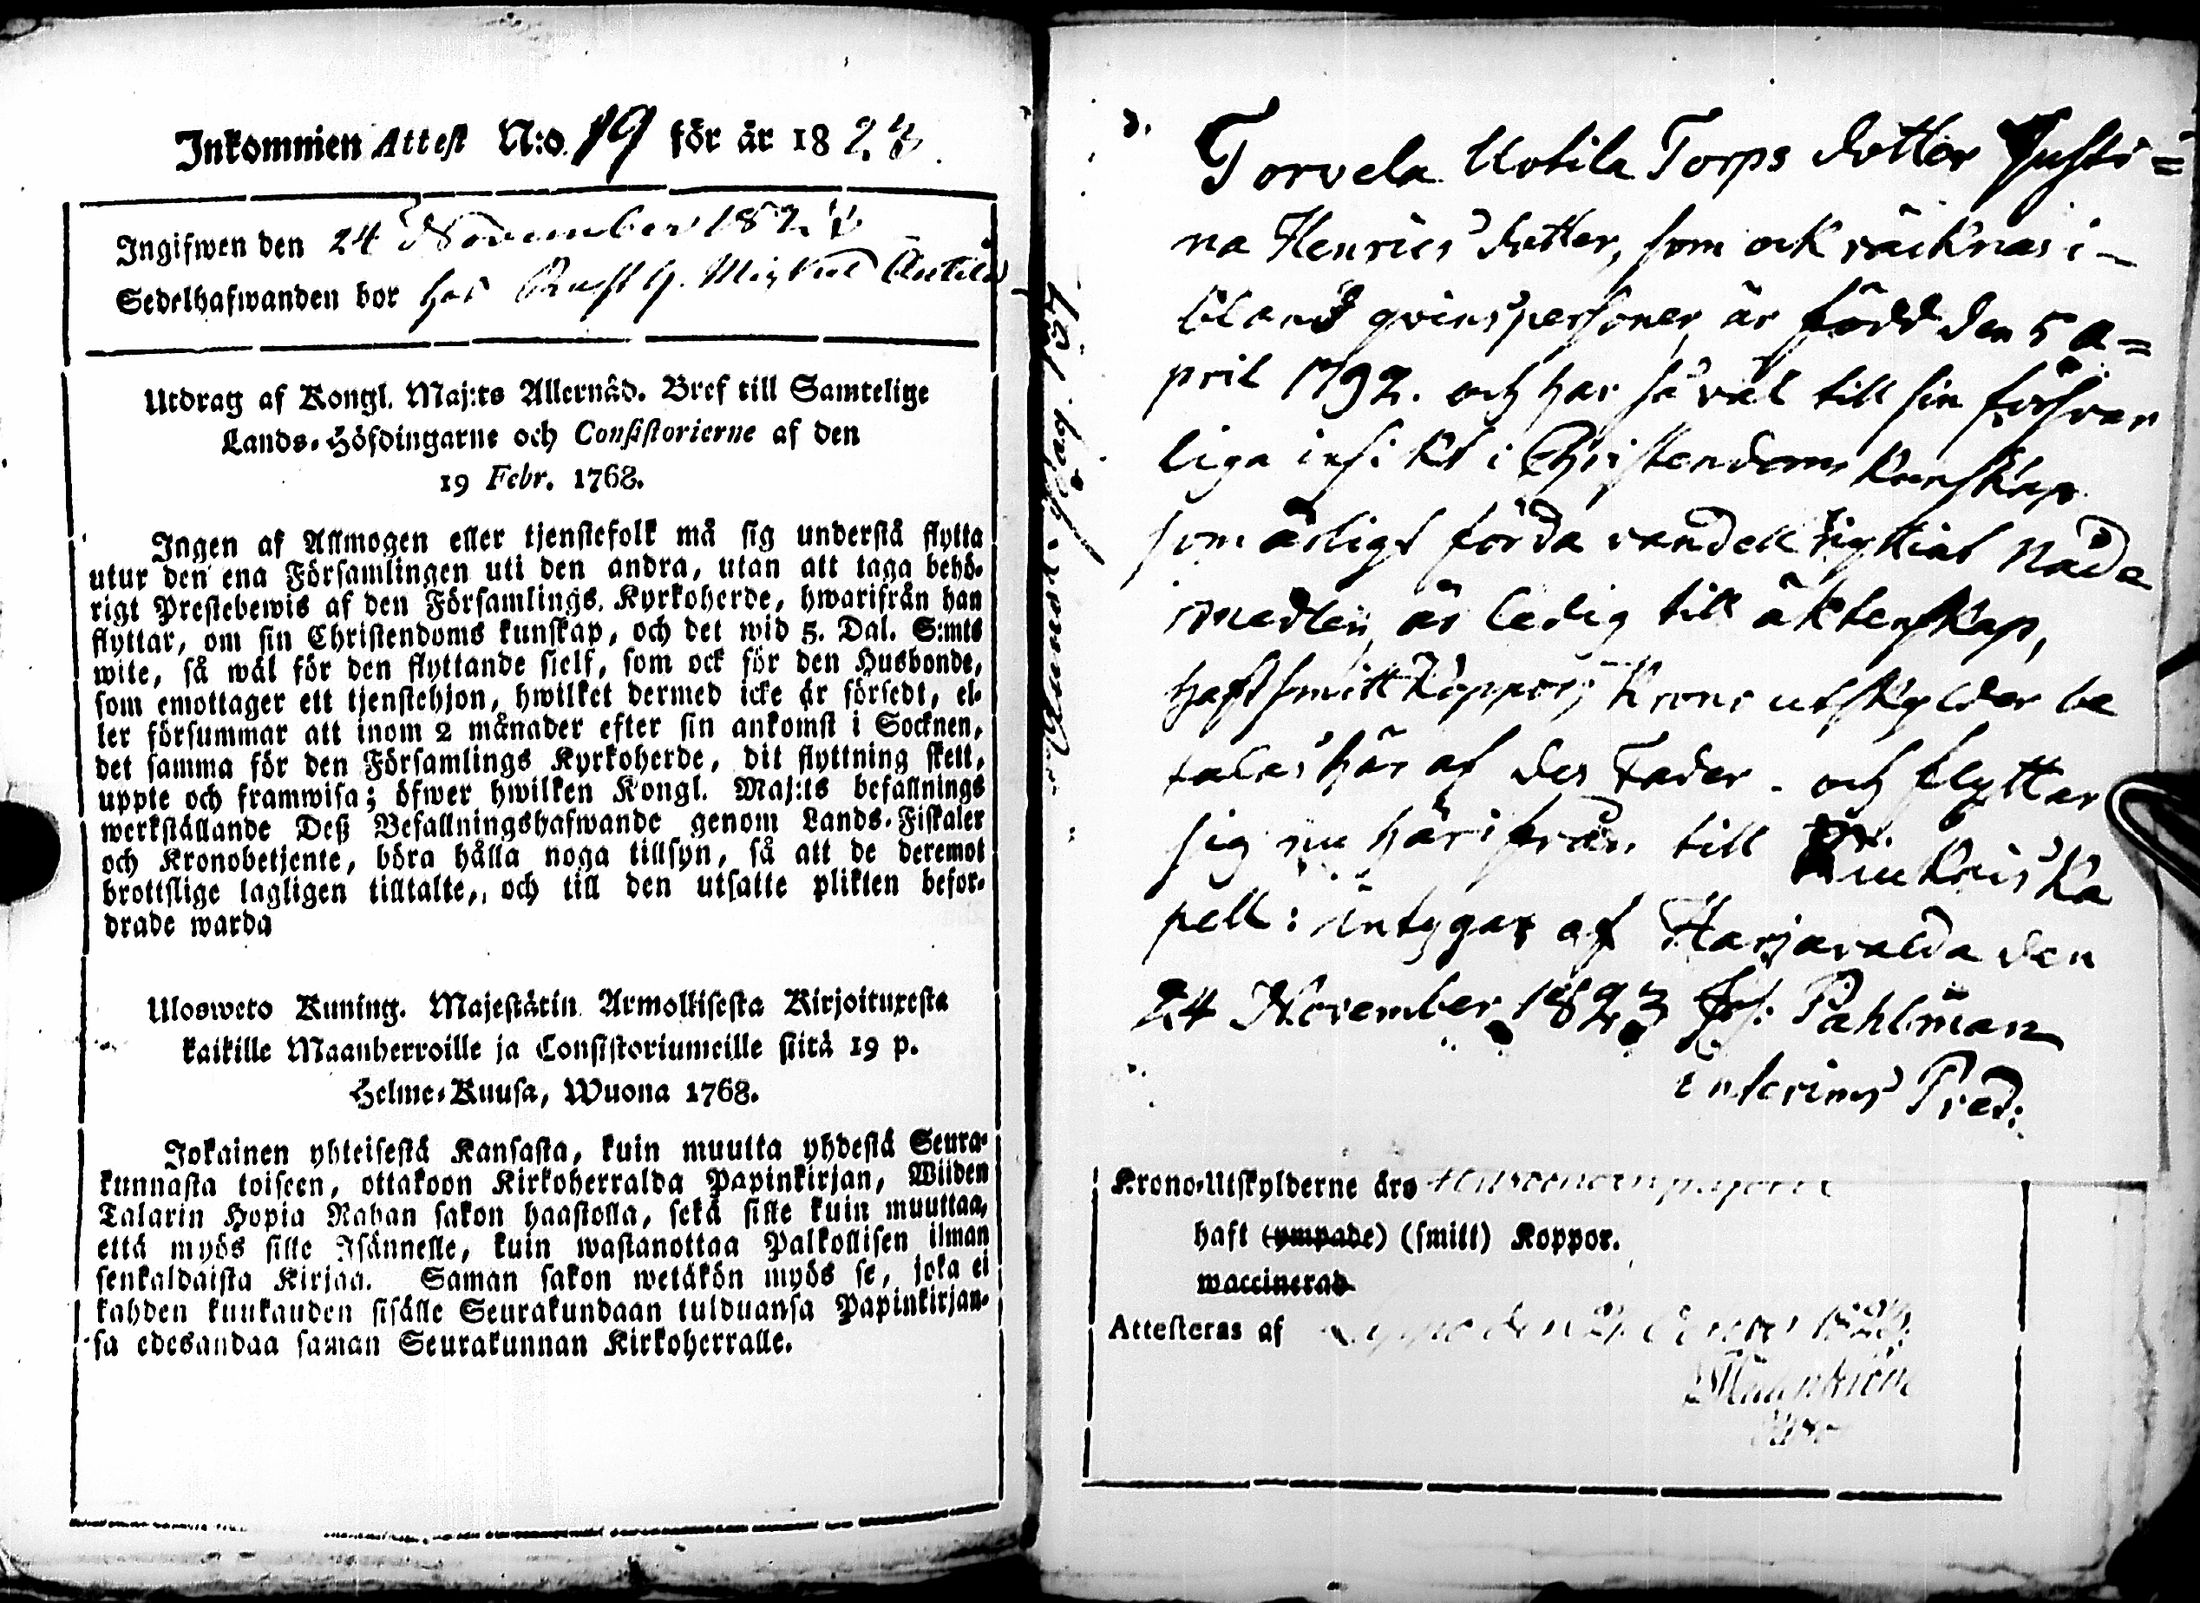 Inkommen Attest N:o. 19 för år 1823.
Ingifwen den 24 November 1823
Sedelhafwanden bor hos Rusth. Mickel Anttila
Utdrag af Kongl. Maj:ts Allernåd. Bref till Samtelige
Lands-Höfdingarne och Consistorierne af den
19 Febr. 1768.
Ingen af Allmogen eller tjenstefolk må sig understå flytta
utur den ena Församlingen uti den andra, utan att taga behö-
rigt Prestebewis af den Församlings Kyrkoherde, hwarifrån han
flyttar, om sin Christendoms kunskap, och det wid 5. Dal. S:mts
wite, så wäl för den flyttande sielf, som ock för den Husbonde,
som emottager ett tjenstehjon, hwilket dermed icke är försedt, el-
ler försummar att inom 2 månader efter sin ankomst i Socknen,
det samma för den Församlings Kyrkoherde, dit flyttning skett,
uppte och framwisa; öfwer hwilken Kongl. Maj:ts befallnings
werkställande Deß Befallningshafwande genom Lands-Fiskaler
och Kronobetjente, böra hålla noga tillsyn, så att de deremot
brottslige lagligen tilltalte, och till den utsatte plikten befor-
drade warda
Ulosweto Kuning. Majestätin Armollisesta Kirjoituxesta
kaikille Maanherroille ja Consistoriumeille siitä 19 p.
Helme-Kuusa, Wuona 1768.
Jokainen yhteisestä Kansasta, kuin muutta yhdestä Seura-
kunnasta toiseen, ottakoon Kirkoherralda Papinkirjan, Wiiden
Talarin Hopia Rahan sakon haastolla, sekä sille kuin muuttaa,
että myös sille Isännelle, kuin wastanottaa Palkollisen ilman
senkaldaista Kirjaa. Saman sakon wetäkön myös se, joka ei
kahden kuukauden sisälle Seurakundaan tulduansa Papinkirjan-
sa edesandaa saman Seurakunnan Kirkoherralle.
Torvela Uotila Torps dotter Justi=
na Henrics dotter, som ock räcknas i-
bland qvinspersoner, är född den 5 A=
pril 1792. och har så väl till sin försvar
liga insikt i Christendoms Kunskap
som ärligt förda vandel nyttiat Nåde
medlen, är ledig till äktenskap,
haft smitt Koppor, Krono utskylder be
talas här af des Fader. och flyttar
sig nu härifrån till Kiukais Ka
pell: intygar af Harjavalda den
24 November 1823 Pahlman
interims Pred:
Krono-Utskylderne äro
haft (ympade) (smitt) Koppor.
waccinerad
Attesteras af